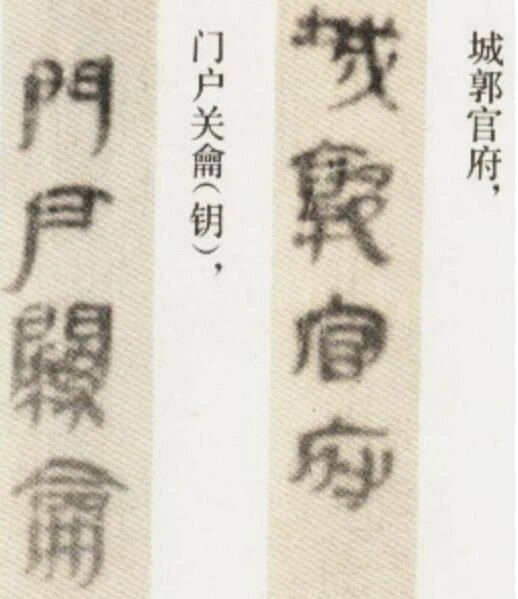 城郭官府，
城郭官府
门户关龠（钥），
門戶關龠